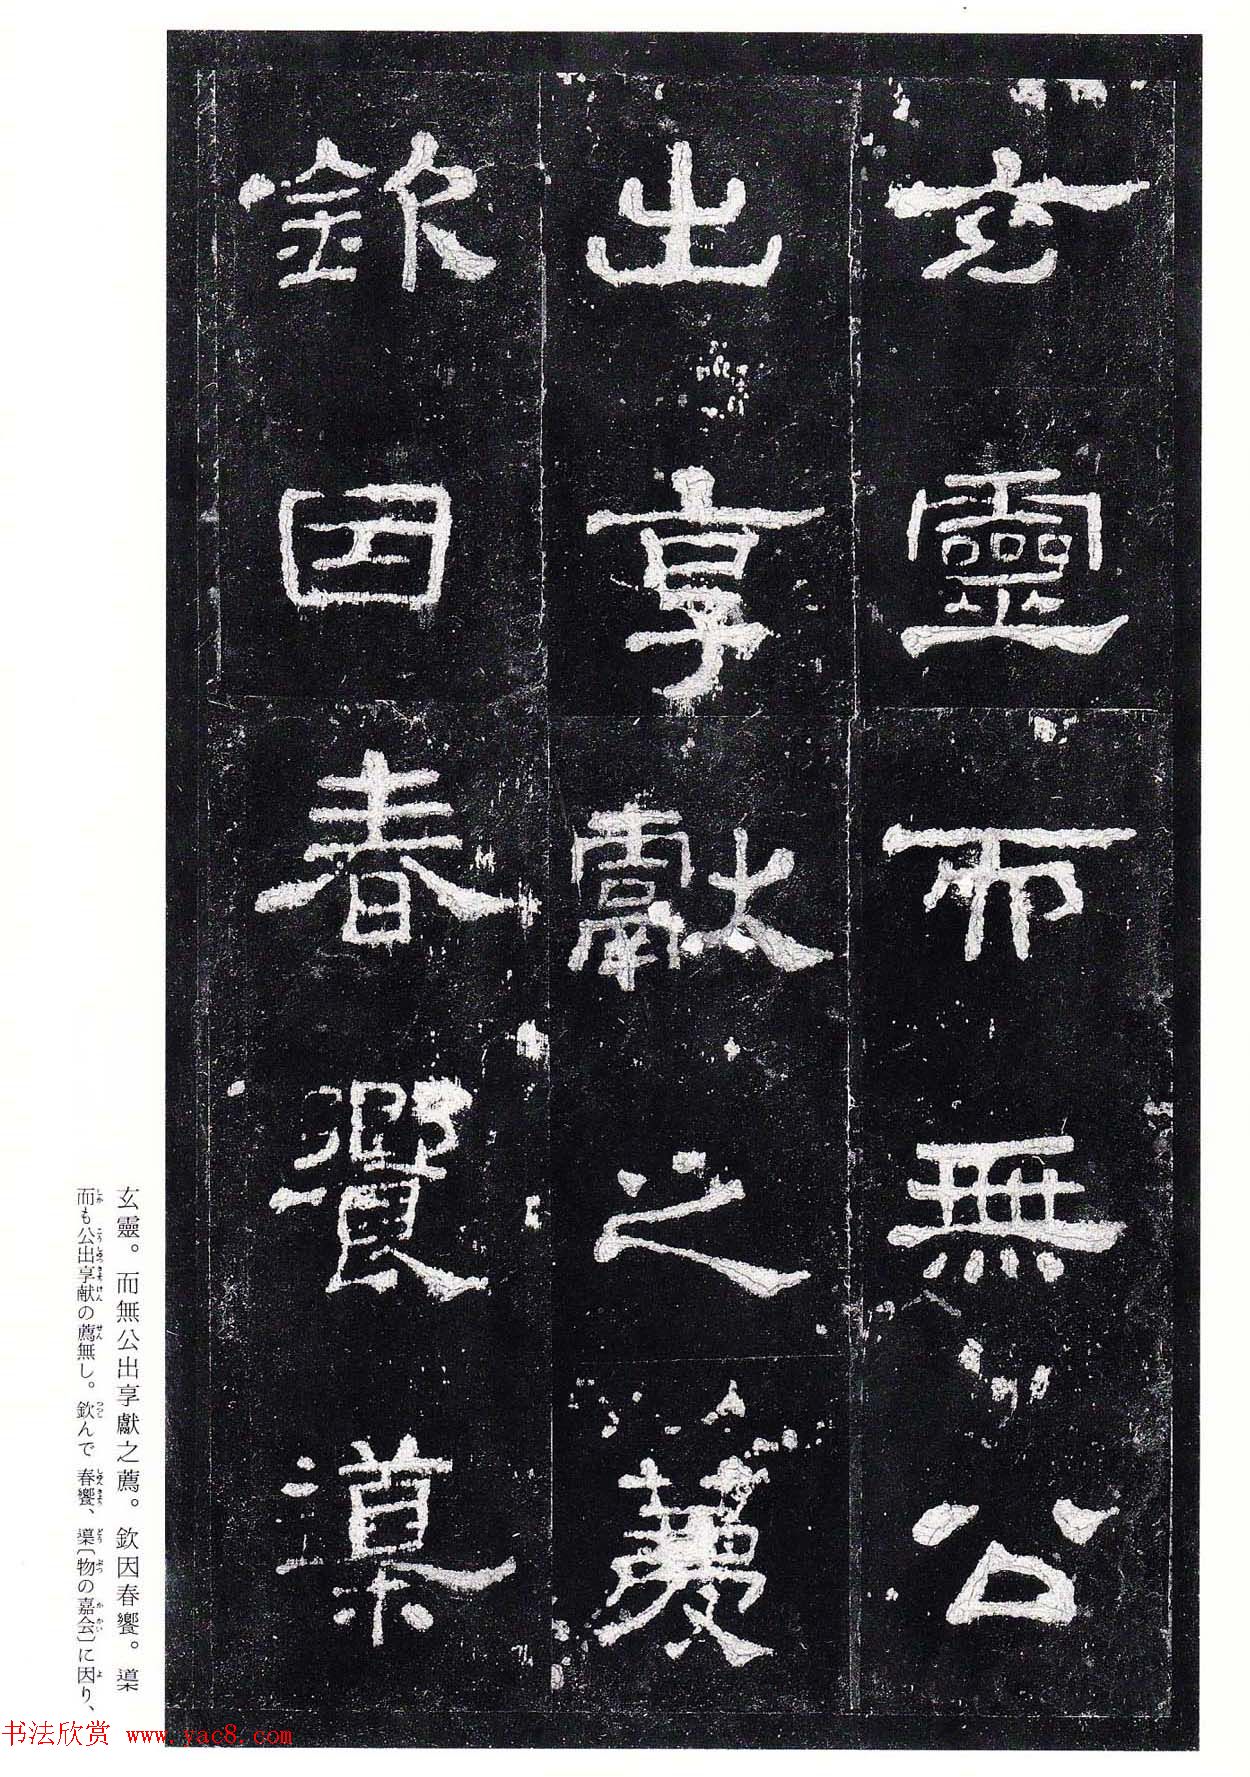 玄靈而無公
出享獻之薦
欽因春饗導
玄靈。而無公出享獻之薦。欽因春饗。導
而も公出享献の薦無し。欽んで春饗、導〔物の嘉会〕に因り、
书法欣赏 www.yac8.com